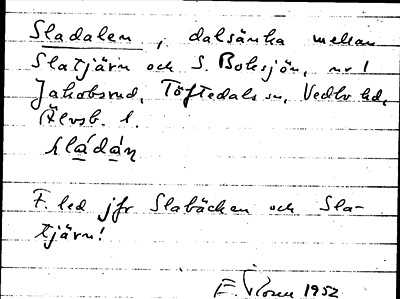 Sladalen, dalsänka mellan
Slatjärn och S. Boksjön, nr 1
Jakobsrud, Töftedals sn, Vedbo hd,
Älvsb. l.
sládàn
F. led jfr Slabäcken och Sla-
tjärn!
E. 1952